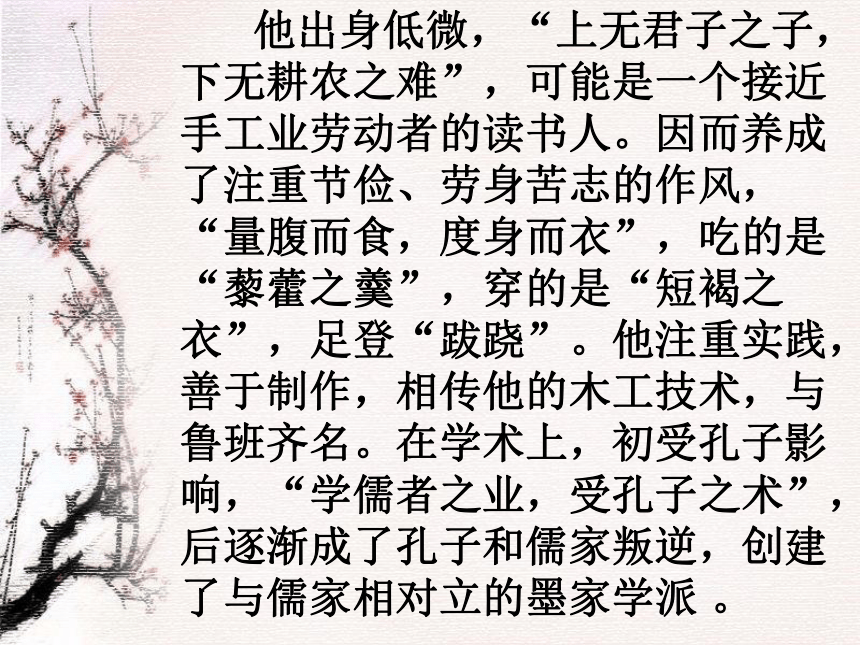 他出身低微，“上无君子之子，
下无耕农之难”，可能是一个接近
手工业劳动者的读书人。因而养成
了注重节俭、劳身苦志的作风，
“量腹而食，度身而衣”，吃的是
“藜藿之羹”，穿的是“短褐之
衣”，足登“跋跷”。他注重实践，
善于制作，相传他的木工技术，与
鲁班齐名。在学术上，初受孔子影
响，“学儒者之业，受孔子之术”，
后逐渐成了孔子和儒家叛逆，创建
了与儒家相对立的墨家学派 。